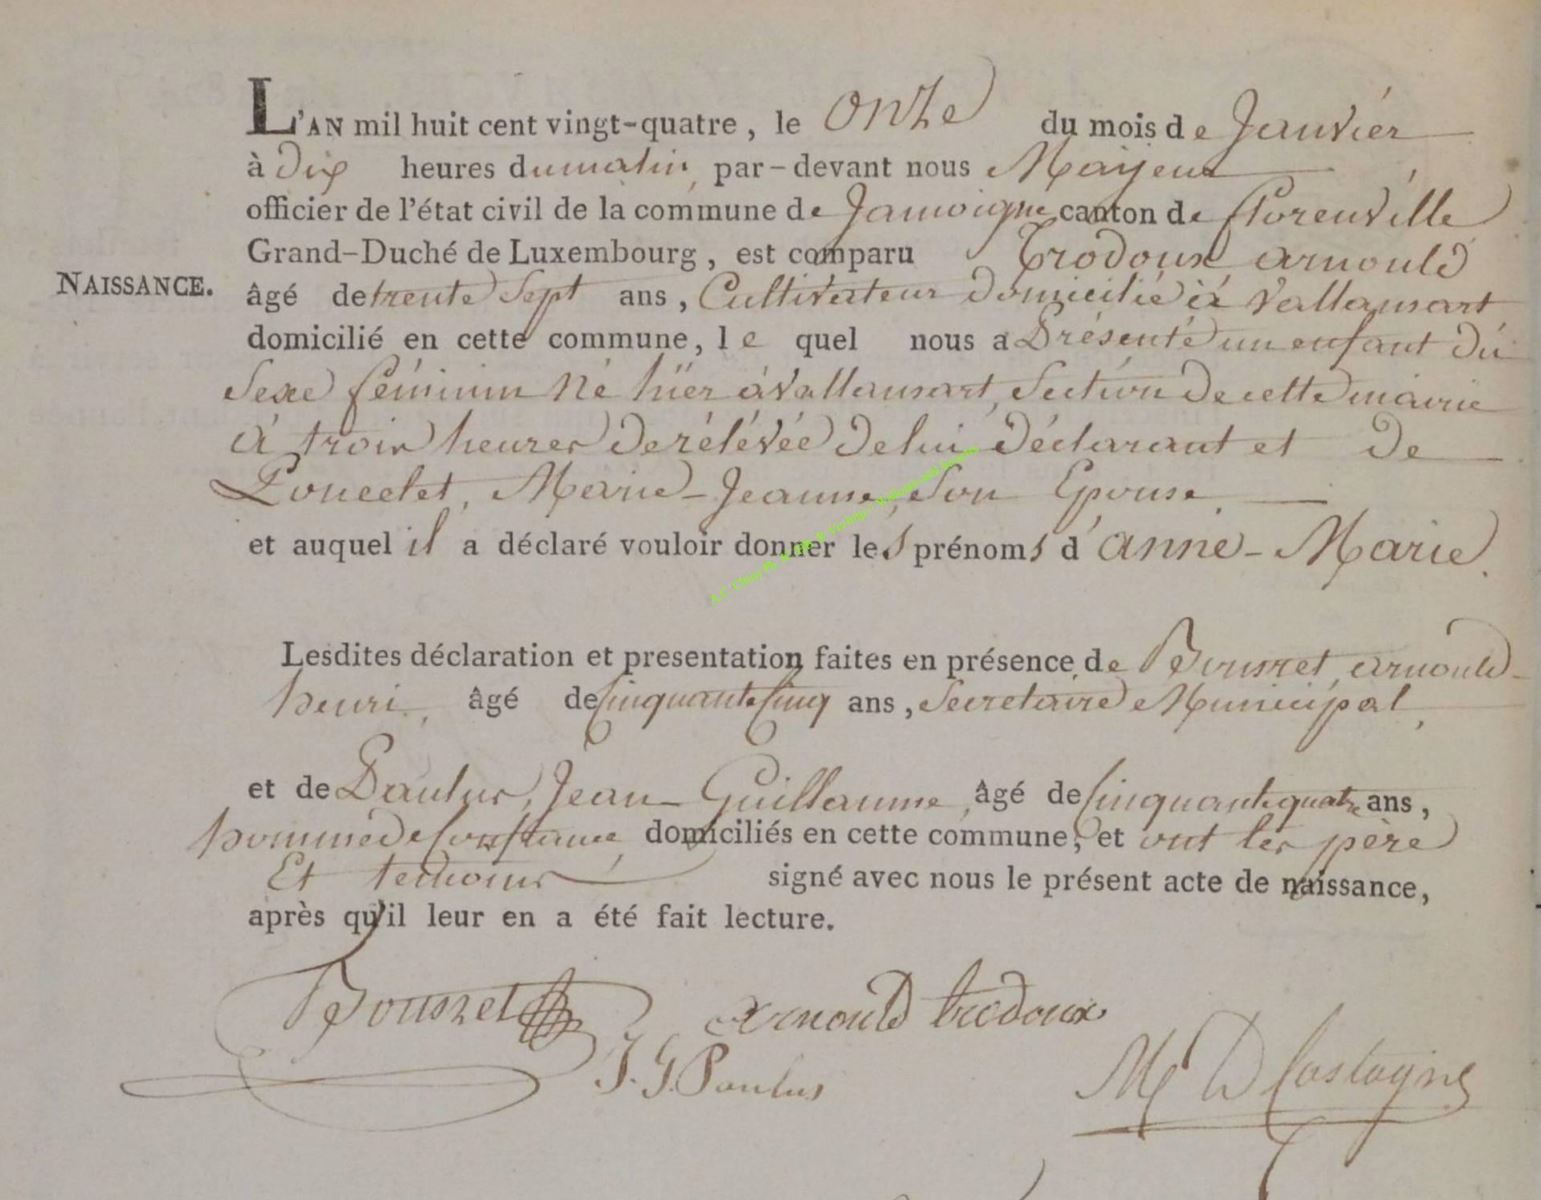 L'AN mil huit cent vingt-quatre, le onze du mois de Janviér
à dix heures du matin, par-devant nous Mayeur
officier de l'état civil de la commune de Jamoigne, canton de florenville
Grand-Duché de Luxembourg, est comparu Trodoux arnould
NAISSANCE.
âgé de trente Sept ans, Cultivateur domicilié à Vallansart
domicilié en cette commune, le quel nous a Présenté un enfant du
Sexe féminin né hier à Vallansart, Section de cette mairie
à trois heures de rélévée de lui déclarant et de
Poncelet, Marie-Jeanne, Son Epouse.
et auquel il a déclaré vouloir donner les prénoms d'anne-Marie.
Lesdites déclaration et presentation faites en présence de arnould-
henri, âgé de Cinquante Cinq ans, Secretaire Municipal,
et de Paulus, Jean Guillaume, âgé de Cinquante quatre ans,
homme de Confiance, domiciliés en cette commune, et ont les père
Et temoins signé avec nous le présent acte de naissance,
après qu'il leur en a été fait lecture.
arnould trodoux
J. G. Paulus